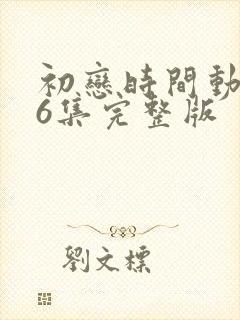 初戀時間動
6集完整版
劉文標